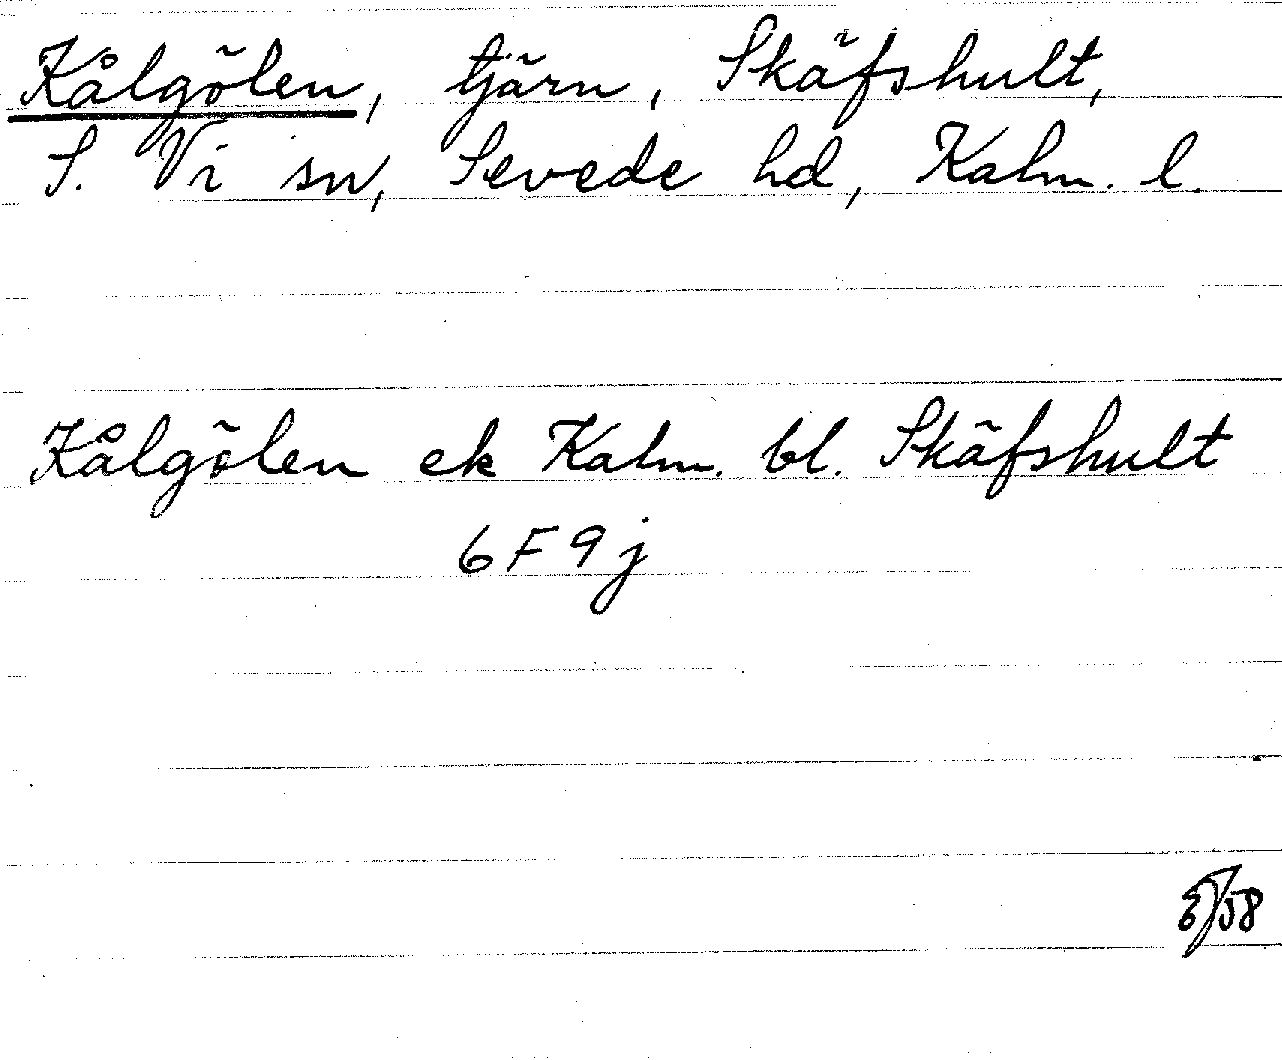 Kålgölen, tjärn, Skäfshult,
S. Vi sn, Sevede hd, Kalm. l.
Kålgölen ek Kalm. bl. Skäfshult
6F9j